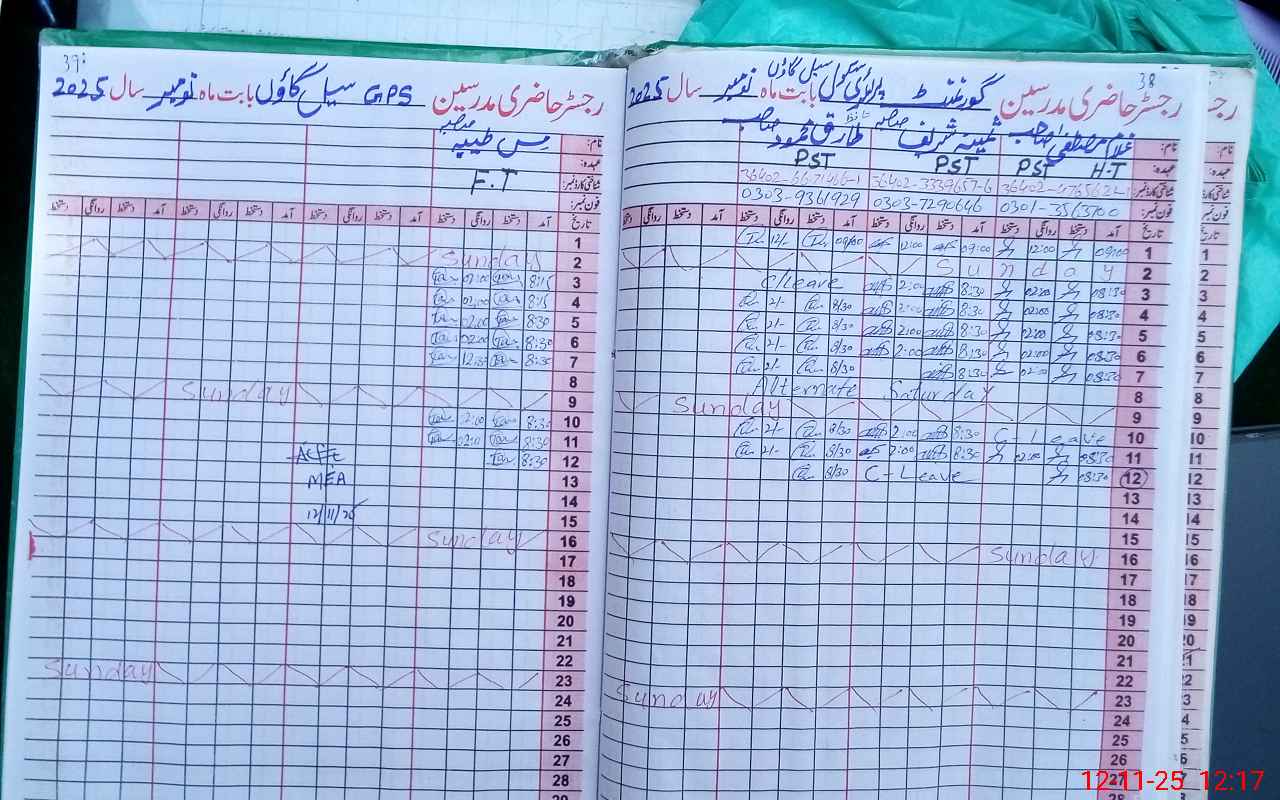 38
رجسٹر حاضری مدرسین گورنمنٹ پرائمری سکول سیل گاؤں بابت ماہ نومبر سال 2025
نام: غلام مصطفیٰ صاحب ثمینہ شریف صاحبہ حافظ طارق محمود صاحب
عہدہ: H.T PST PST PST
شناختی کارڈ نمبر: 36402-3339657-6 36402-6671466-1
فون نمبر: 0301-3563700 0303-7290646 0303-9361929
تاریخ آمد دستخط روانگی دستخط آمد دستخط روانگی دستخط آمد دستخط روانگی دستخط
1 09:00 12:00 09:00 12:00 09/00 12/-
2 Sunday
3 08:30 02:00 8:30 2:00 C/Leave
4 08:30 02:00 8:30 2:00 8/30 2/-
5 08:30 02:00 8:30 2:00 8/30 2/-
6 08:30 02:00 8:30 2:00 8/30 2/-
7 08:30 02:00 8:30 8/30 2/-
8 Alternate Saturday
9 Sunday
10 C-Leave 8:30 2:00 8/30 2/-
11 08:30 02:00 8:30 2:00 8/30 2/-
12 08:30 C-Leave 8/30
13
14
15
16 Sunday
17
18
19
20
21
22
23 Sunday
24
25
26
27
28
39
رجسٹر حاضری مدرسین GPS سیل گاؤں بابت ماہ نومبر سال 2025
نام: مس طیبہ صاحبہ
عہدہ: F.T
شناختی کارڈ نمبر:
فون نمبر:
تاریخ آمد دستخط روانگی دستخط آمد دستخط روانگی دستخط آمد دستخط روانگی دستخط آمد دستخط روانگی دستخط
1
2 Sunday
3 8:15 02:00
4 8:15 02:00
5 8:30 02:00
6 8:30 02:00
7 8:30 12:30
8
9 Sunday
10 8:30 02:00
11 8:30 02:00
12 8:30
13 MEA
14
15 12/11/25
16 Sunday
17
18
19
20
21
22
23 Sunday
24
25
26
27
28
12-11-25 12:17